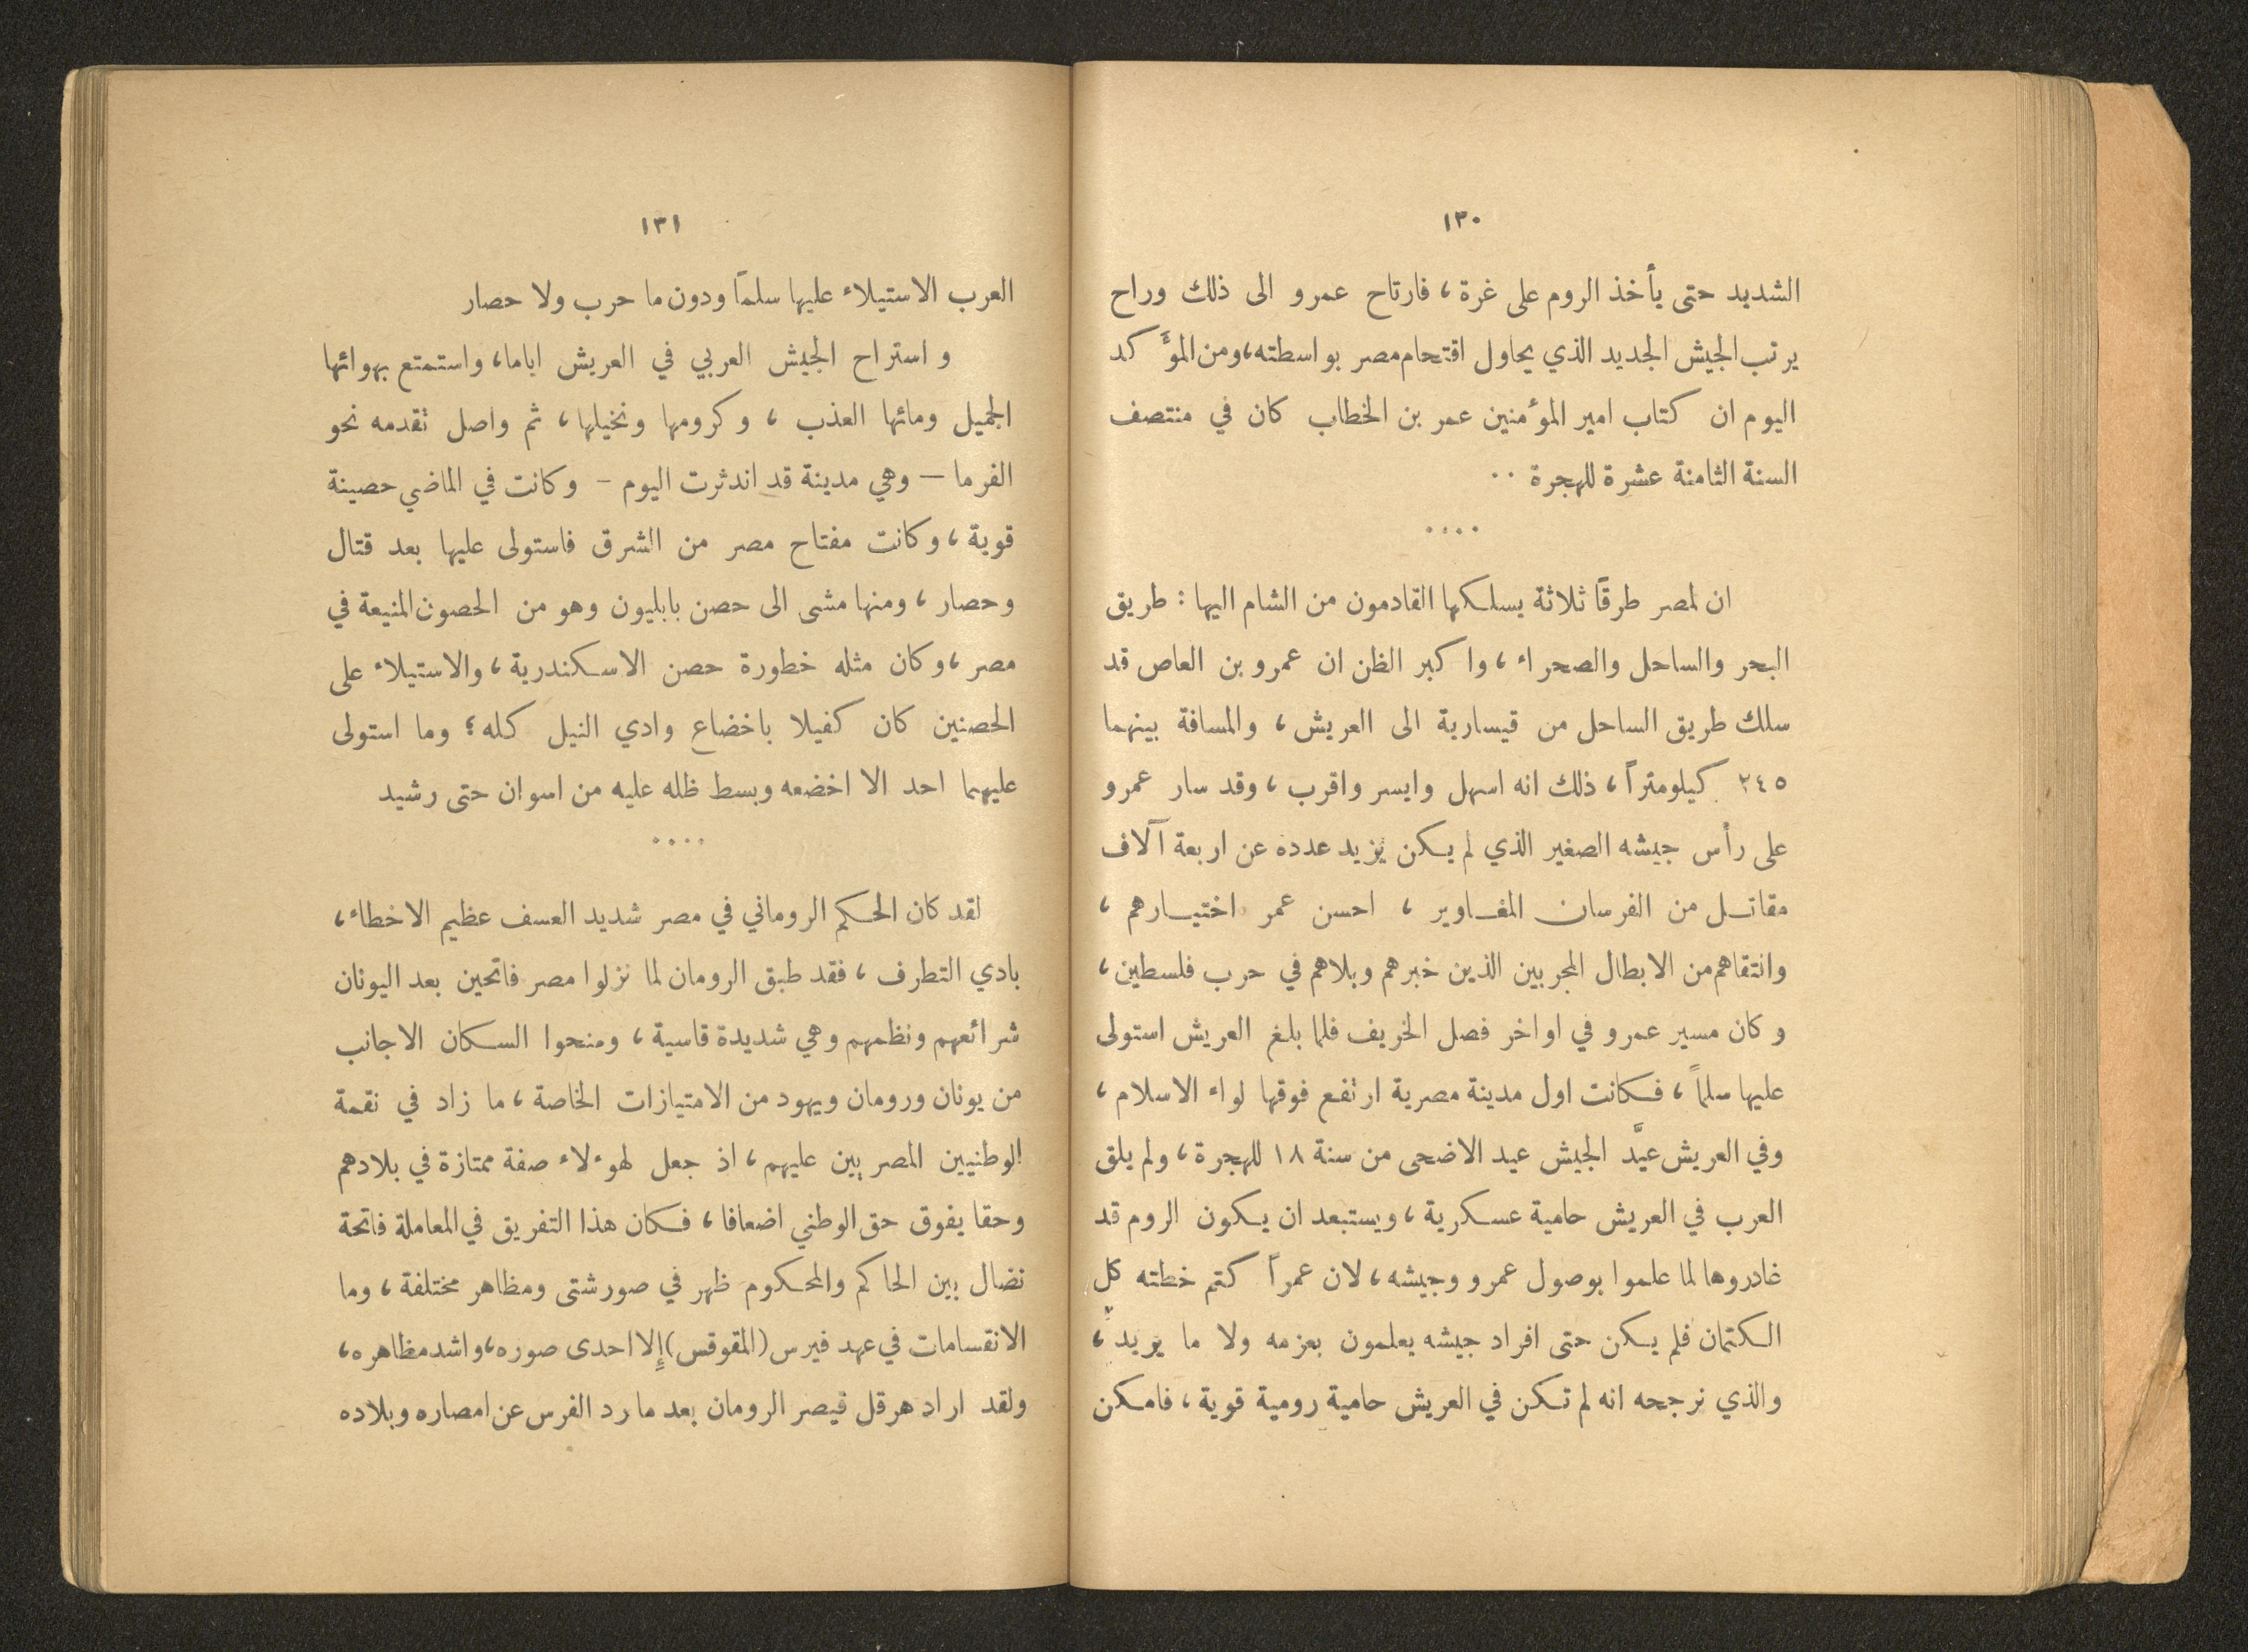 ١٣٠
الشديد حتى يأخذ الروم على غرة، فارتاح عمرو الى ذلك وراح
يرتب الجيش الجديد الذي يحاول اقتحام مصر بواسطته، ومن المؤَكد
اليوم ان كتاب امير المؤمنين عمر بن الخطاب كان في منتصف
السنة الثامنة عشرة للهجرة ..
....
ان لمصر طرقاً ثلاثة يسلكها القادمون من الشام اليها : طريق
البحر والساحل والصحراء، واكبر الظن ان عمرو بن العاص قد
سلك طريق الساحل من قيسارية الى العريش، والمسافة بينهما
٢٤٥ كيلومتراً، ذلك انه اسهل وايسر واقرب، وقد سار عمرو
على رأس جيشه الصغير الذي لم يكن يزيد عدده عن اربعة آلاف
مقاتل من الفرسان المغاوير، احسن عمر اختيارهم،
وانتقاهم من الابطال المجربين الذين خبرهم وبلاهم في حرب فلسطين،
وكان مسير عمرو في اواخر فصل الخريف فلما بلغ العريش استولى
عليها سلماً، فكانت اول مدينة مصرية ارتفع فوقها لواء الاسلام،
وفي العريش عيَّد الجيش عيد الاضحى من سنة ١٨ للهجرة، ولم يلق
العرب في العريش حامية عسكرية، ويستبعد ان يكون الروم قد
غادروها لما علموا بوصول عمرو وجيشه، لان عمراً كتم خطته كل
الكتمان فلم يكن حتى افراد جيشه يعلمون بعزمه ولا ما يريد،
والذي نرجحه انه لم تكن في العريش حامية رومية قوية، فامكن
١٣١
العرب الاستيلاء عليها سلماً ودون ما حرب ولا حصار
و استراح الجيش العربي في العريش اياما، واستمتع بهوائها
الجميل ومائها العذب، وكرومها ونخيلها، ثم واصل تقدمه نحو
الفرما — وهي مدينة قد اندثرت اليوم - وكانت في الماضي حصينة
قوية، وكانت مفتاح مصر من الشرق فاستولى عليها بعد قتال
وحصار، ومنها مشى الى حصن بابليون وهو من الحصون المنيعة في
مصر، وكان مثله خطورة حصن الاسكندرية، والاستيلاء على
الحصنين كان كفيلا باخضاع وادي النيل كله؛ وما استولى
عليهما احد الا اخضعه وبسط ظله عليه من اسوان حتى رشيد
....
لقد كان الحكم الروماني في مصر شديد العسف عظيم الاخطاء،
بادي التطرف، فقد طبق الرومان لما نزلوا مصر فاتحين بعد اليونان
شرائعهم ونظمهم وهي شديدة قاسية، ومنحوا السكان الاجانب
من يونان ورومان ويهود من الامتيازات الخاصة، ما زاد في نقمة
الوطنيين المصريين عليهم، اذ جعل لهؤلاء صفة ممتازة في بلادهم
وحقا يفوق حق الوطني اضعافا، فكان هذا التفريق في المعاملة فاتحة
نضال بين الحاكم والمحكوم ظهر في صور شتى ومظاهر مختلفة، وما
الانقسامات في عهد فيرس (المقوقس) إلا احدى صوره، واشد مظاهره،
ولقد اراد هرقل قيصر الرومان بعد ما رد الفرس عن امصاره وبلاده